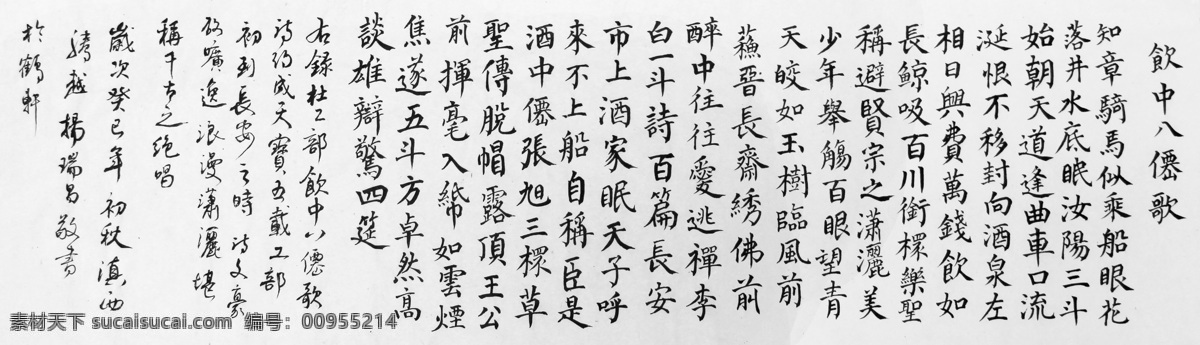 飲中八僊歌
知章騎馬似乘船眼花
落井水底眠汝陽三斗
始朝天道逢曲車口流
涎恨不移封向酒泉左
相日興費萬錢飲如
長鯨吸百川銜桮樂聖
稱避賢宗之瀟灑美
少年舉觴百眼望青
天皎如玉樹臨風前
蘇晉長齋綉佛前
醉中往往愛逃禪李
白一斗詩百篇長安
市上酒家眠天子呼
來不上船自稱臣是
酒中僊張旭三桮草
聖傳脫帽露頂王公
前揮毫入紙如雲煙
焦遂五斗方卓然高
談雄辯驚四筵
右錄杜工部飲中八僊歌
詩約成天寶五載工部
初到長安之時詩文豪
放曠逸浪漫瀟灑堪
稱千古之絕唱
歲次癸巳年初秋滇西
騰越楊瑞昌敬書
於鶴軒
素材天下 sucaisucai.com 编号：00955214